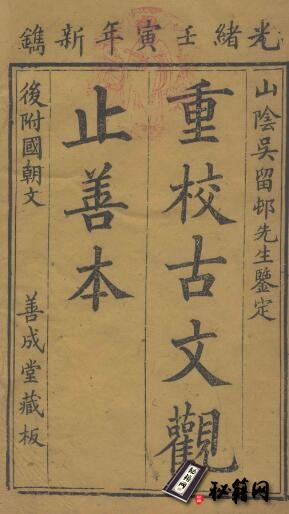 光緒壬寅年新鐫
山陰吳留邨先生鑒定
重校古文觀
止善本
後附國朝文
善成堂藏板
秘籍网